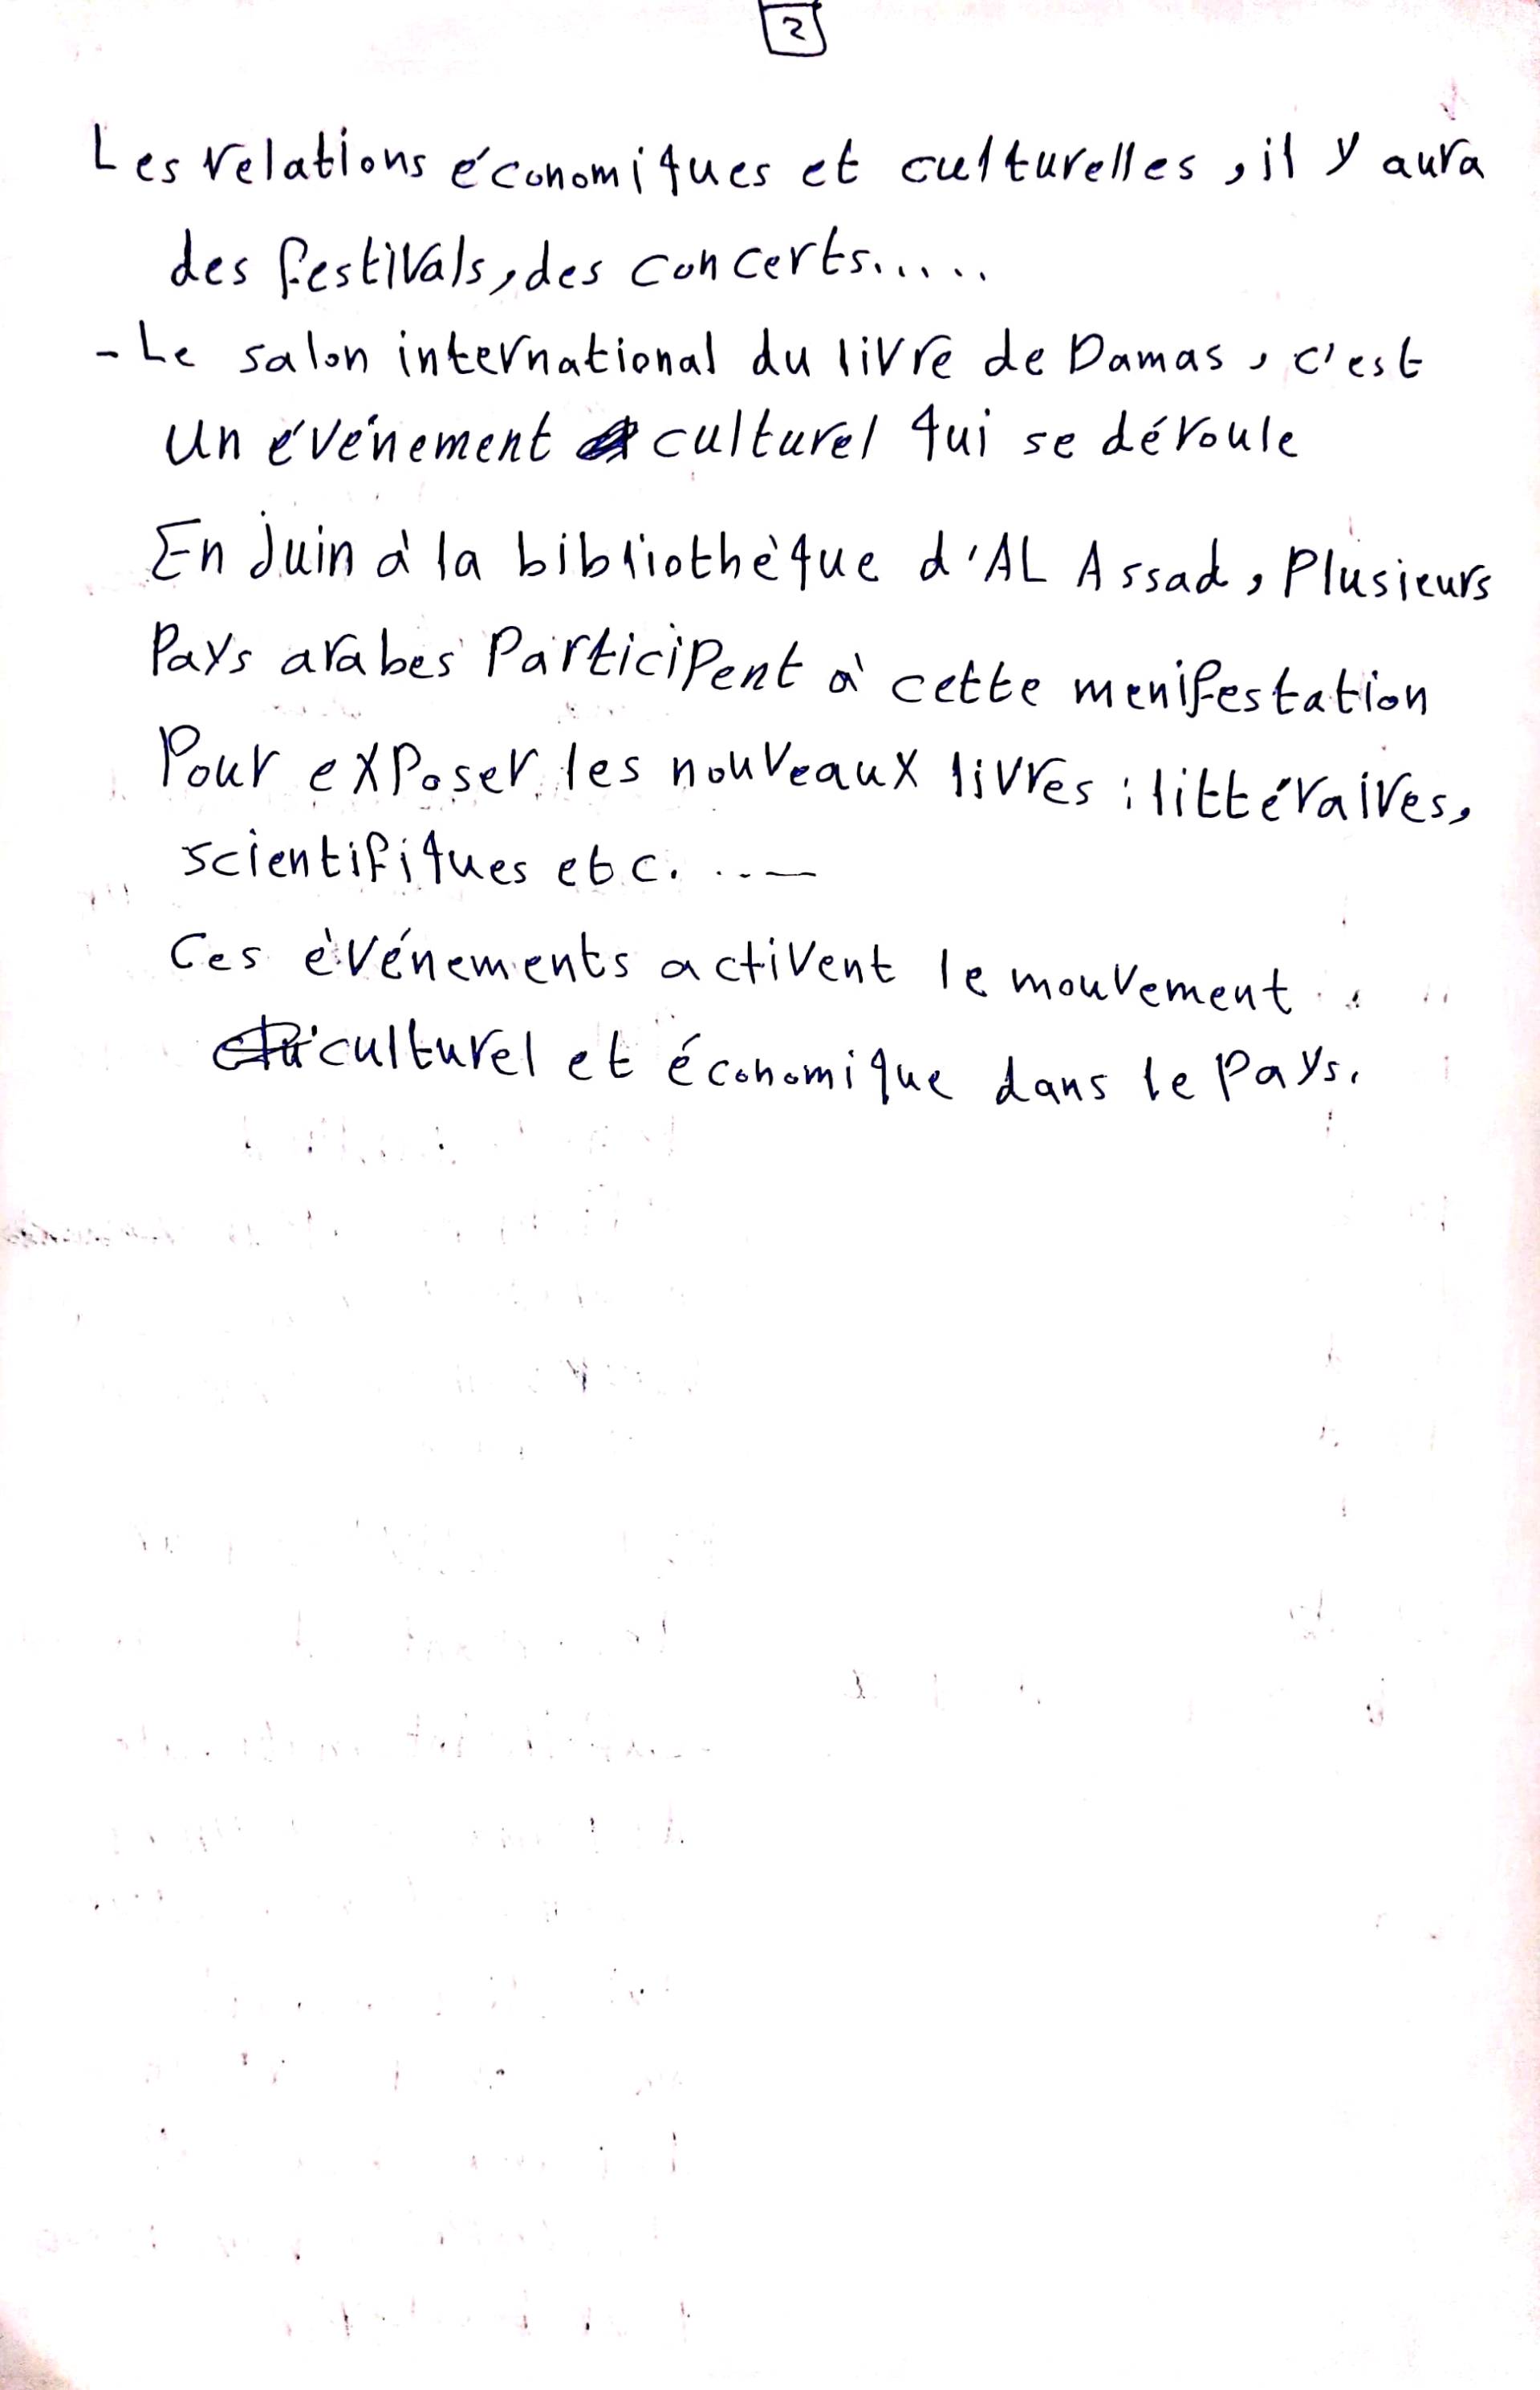 2
Les relations économiques et culturelles, il y aura
des festivals, des concerts.....
- Le salon international du livre de Damas, c'est
un événement culturel qui se déroule
En Juin à la bibliothèque d'AL Assad, Plusieurs
Pays arabes Participent à cette menifestation
Pour exposer les nouveaux livres : littéraires,
scientifiques etc. ...
Ces èvénements activent le mouvement
culturel et économique dans le Pays.